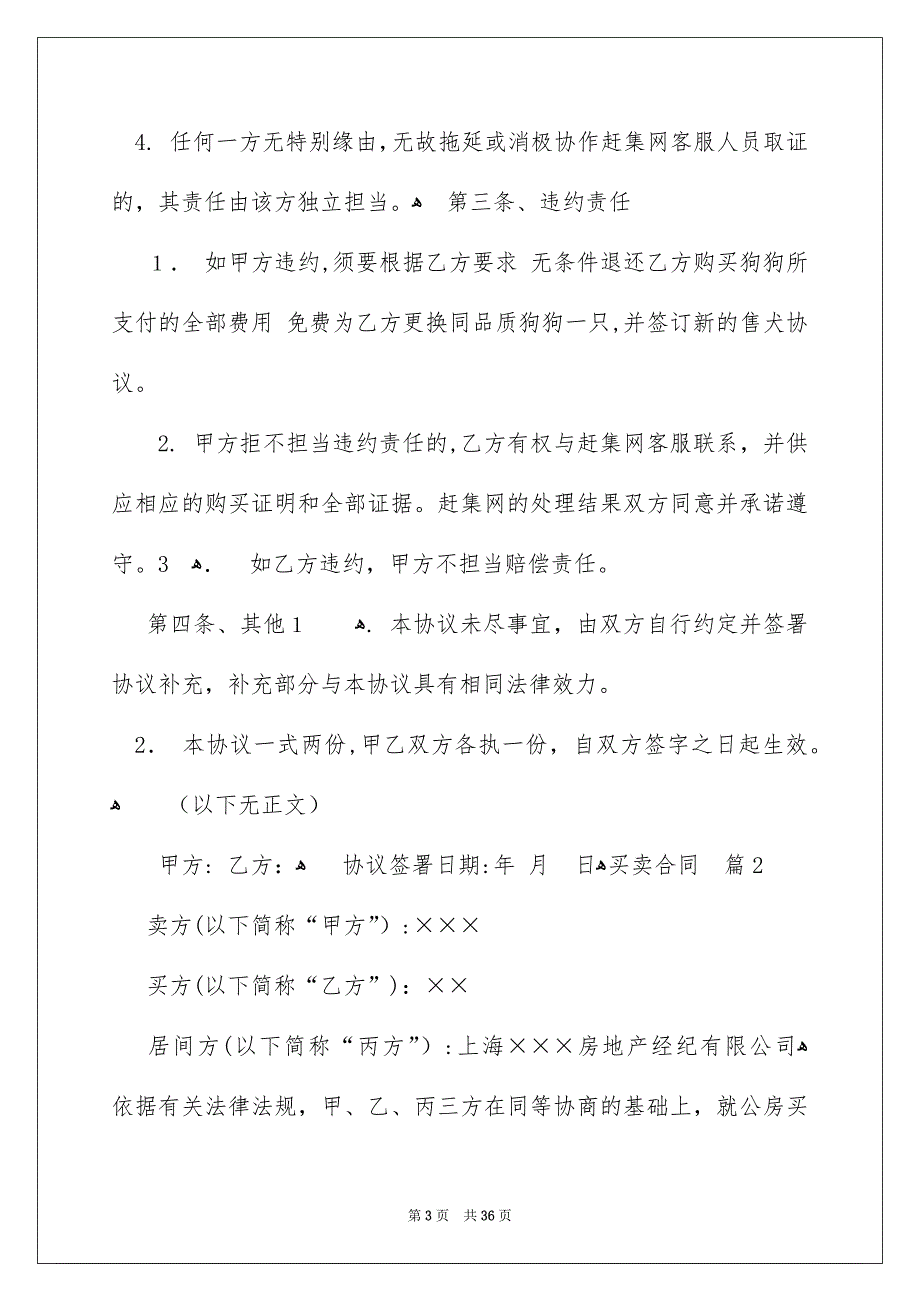 4. 任何一方无特别缘由,无故拖延或消极协作赶集网客服人员取证
的，其责任由该方独立担当。ﻫ 第三条、违约责任
1． 如甲方违约,须要根据乙方要求 无条件退还乙方购买狗狗所
支付的全部费用 免费为乙方更换同品质狗狗一只,并签订新的售犬协
议。
2. 甲方拒不担当违约责任的,乙方有权与赶集网客服联系，并供
应相应的购买证明和全部证据。赶集网的处理结果双方同意并承诺遵
守。3 ﻫ． 如乙方违约，甲方不担当赔偿责任。
第四条、其他1 ﻫ. 本协议未尽事宜，由双方自行约定并签署
协议补充，补充部分与本协议具有相同法律效力。
2． 本协议一式两份,甲乙双方各执一份，自双方签字之日起生效。
ﻫ （以下无正文）
甲方: 乙方：ﻫ 协议签署日期:年 月 日ﻫ买卖合同 篇2
卖方(以下简称“甲方”）:×××
买方(以下简称“乙方”)：××
居间方(以下简称“丙方”）:上海×××房地产经纪有限公司ﻫ
依据有关法律法规，甲、乙、丙三方在同等协商的基础上，就公房买
第 3 页 共 36 页